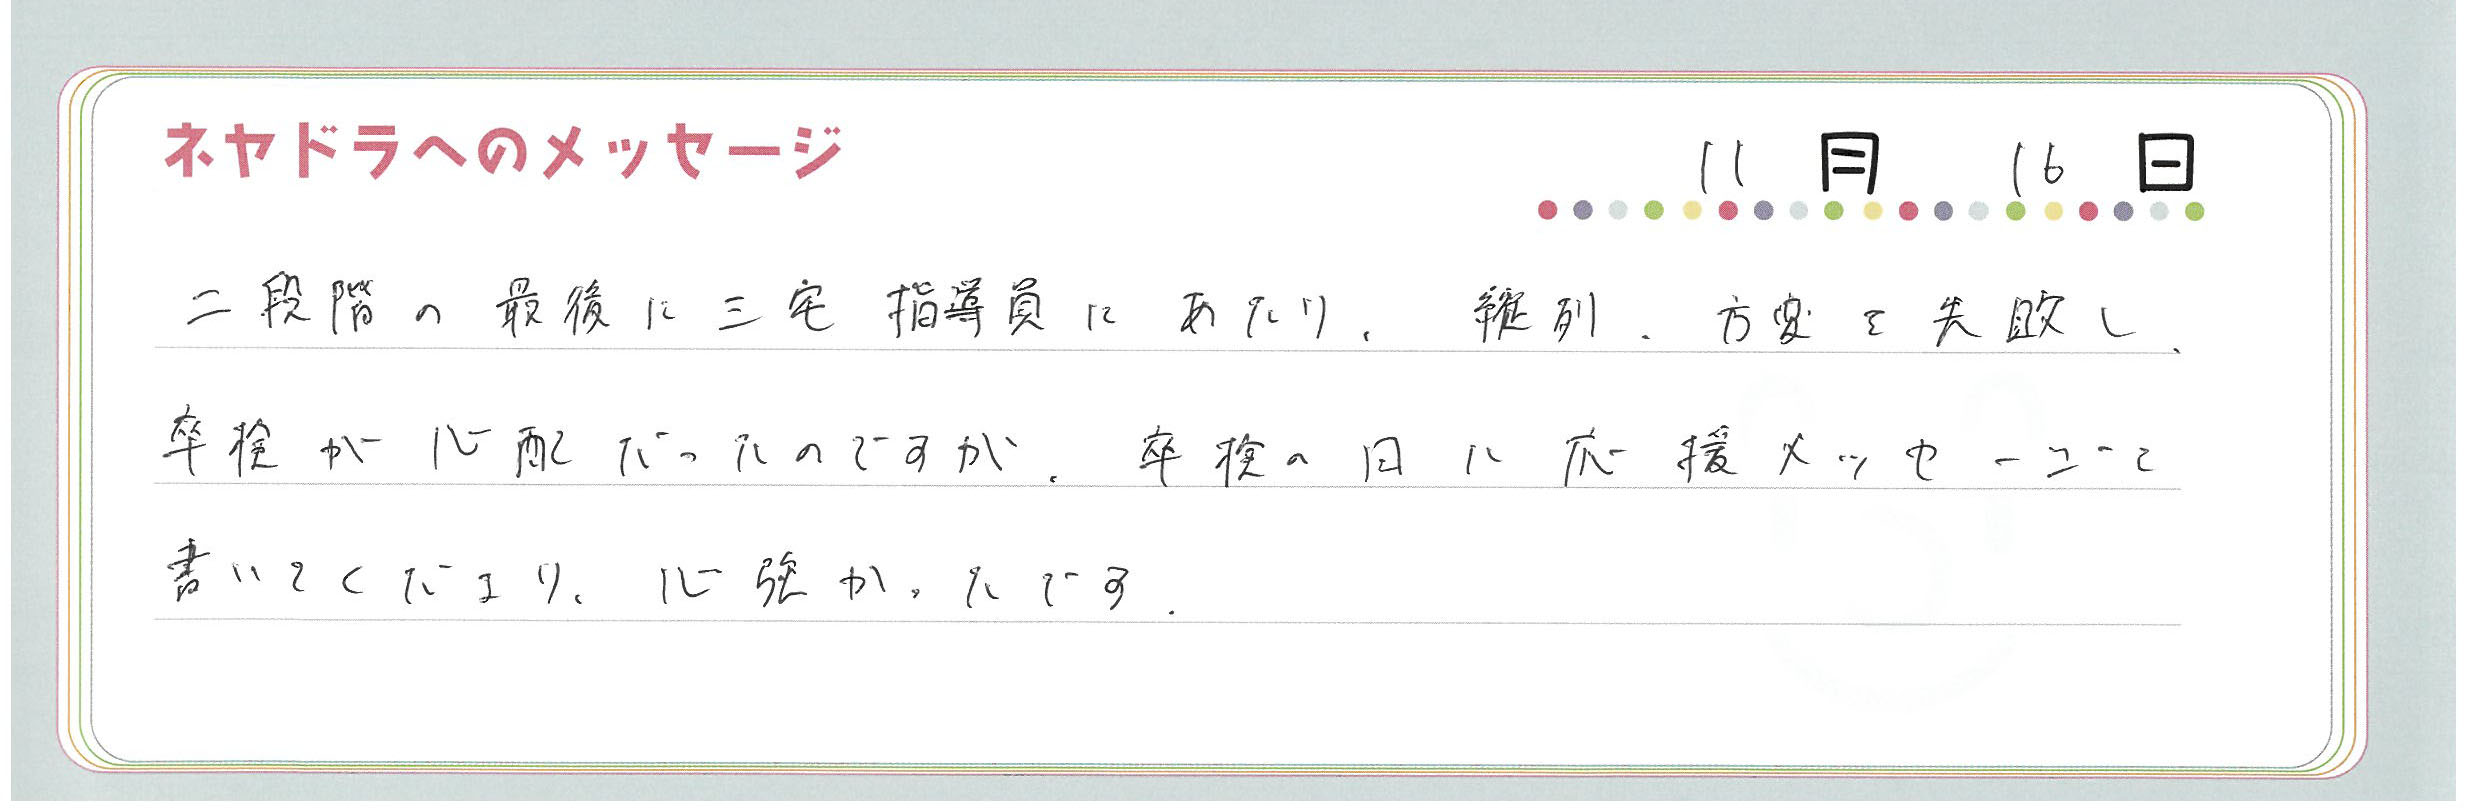 ネヤドラへのメッセージ
11月 16日
二段階の最後に三宅指導員にあたり、縦列、方変で失敗し、
卒検が心配だったのですが、卒検の日に応援メッセージを
書いてくださり、心強かったです。